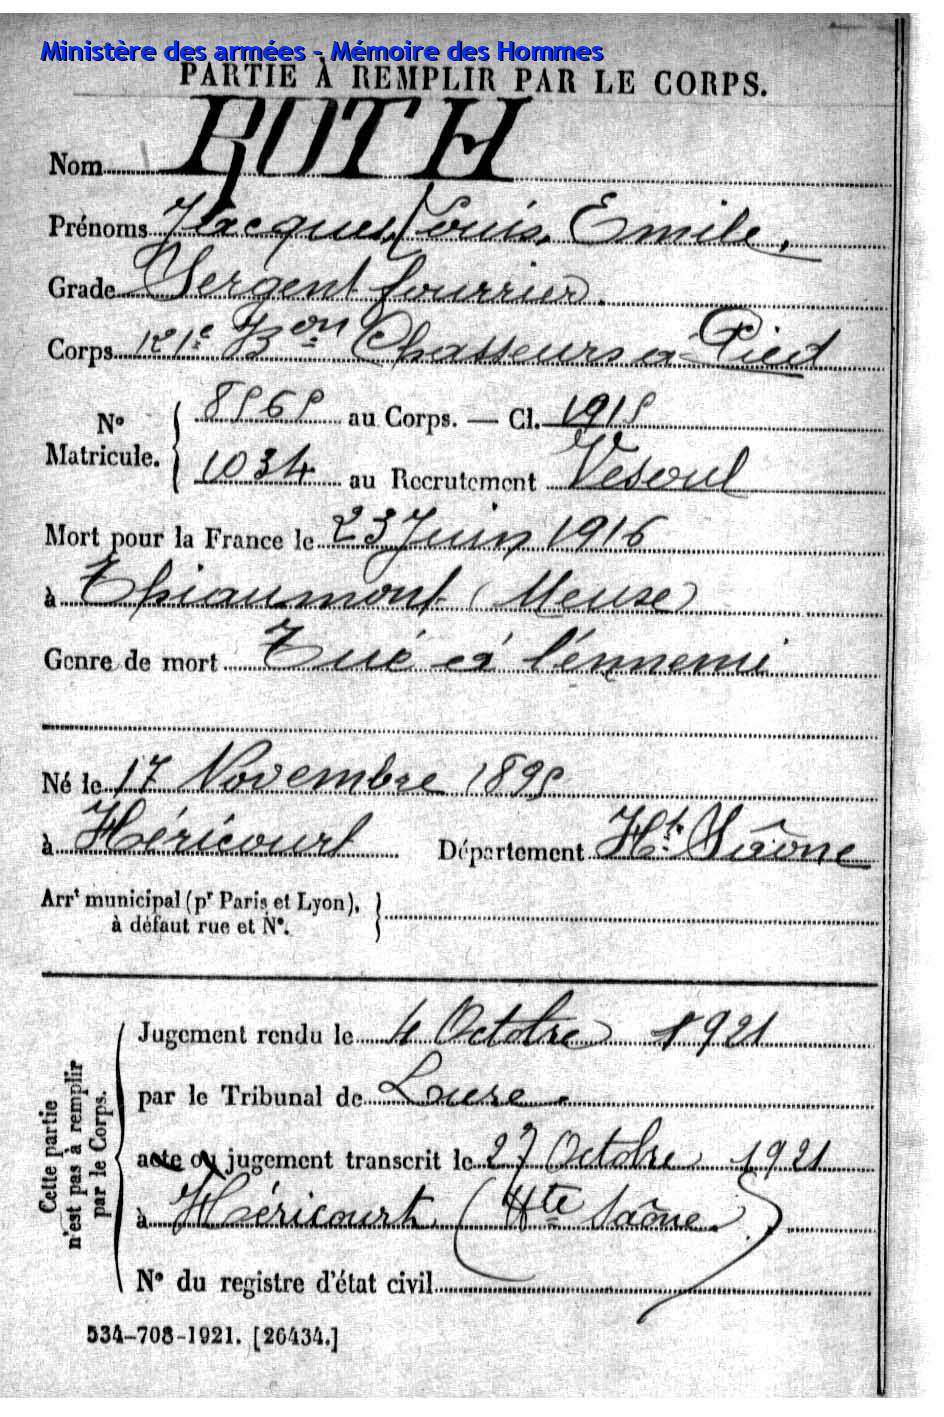 Ministère des armées - Mémoire des Hommes
PARTIE À REMPLIR PAR LE CORPS.
Nom ROTH
Prénoms Jacques, Louis, Emile,
Grade Sergent fourrier.
Corps 121e Bon Chasseurs à Pied
No Matricule. { 8565 au Corps. — Cl. 1915
1034 au Recrutement Vesoul
Mort pour la France le 23 Juin 1916
à Thiaumont (Meuse)
Genre de mort Tué à l'ennemi
Né le 17 Novembre 1895
à Héricourt Département Hte Saône
Arrt municipal (pr Paris et Lyon),
à défaut rue et No.
Cette partie n'est pas à remplir par le Corps.
Jugement rendu le 4 Octobre 1921
par le Tribunal de Lure.
acte ou jugement transcrit le 27 Octobre 1921
à Héricourt (Hte Saône.)
No du registre d'état civil
534-708-1921. [26434.]